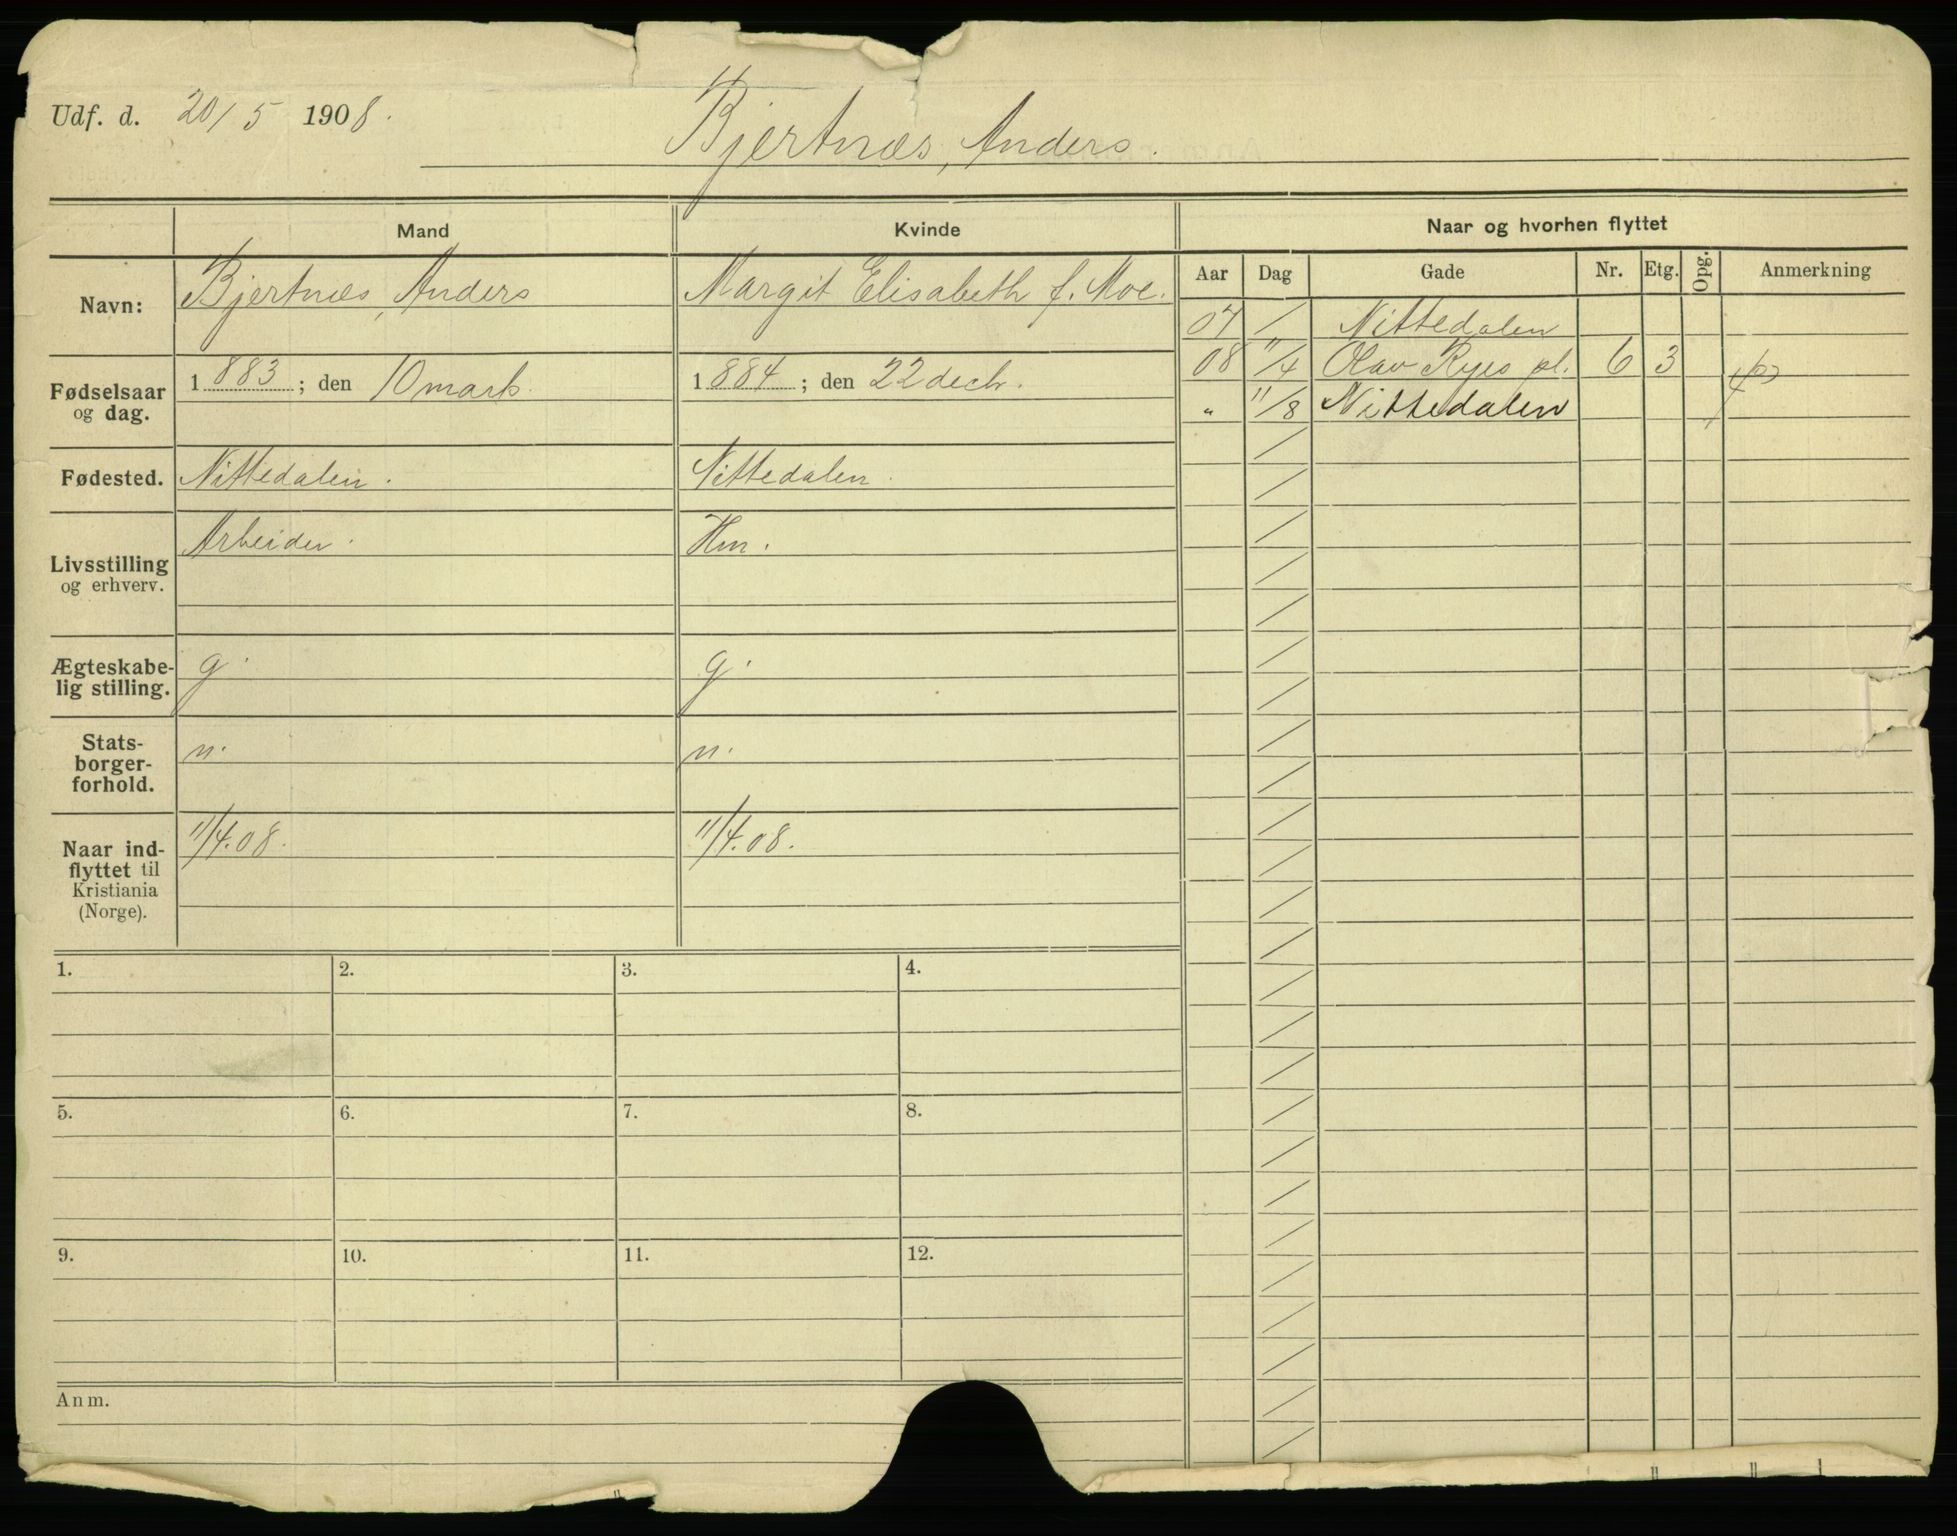 Udf. d. 20/5 1908.
Bjertnæs, Anders.
Mand Kvinde Naar og hvorhen flyttet
Aar Dag Gade Nr. Etg. Opg. Anmerkning
Navn: Bjertnæs, Anders Margit Elisabeth f. Moe.
07 / Nittedalen
Fødselsaar og dag. 1883; den 10 marts. 1884; den 22 decbr.
08 11/4 Olav Ryes pl. 6 3
" 11/8 Nittedalen
Fødested. Nittedalen. Nittedalen.
Livsstilling og erhverv. Arbeider. Hm.
Ægteskabe-
lig stilling. g. g.
Stats-
borger-
forhold. n. n.
Naar ind-
flyttet til
Kristiania
(Norge). 11/4.08. 11/4.08.
1. 2. 3. 4.
5. 6. 7. 8.
9. 10. 11. 12.
Anm.